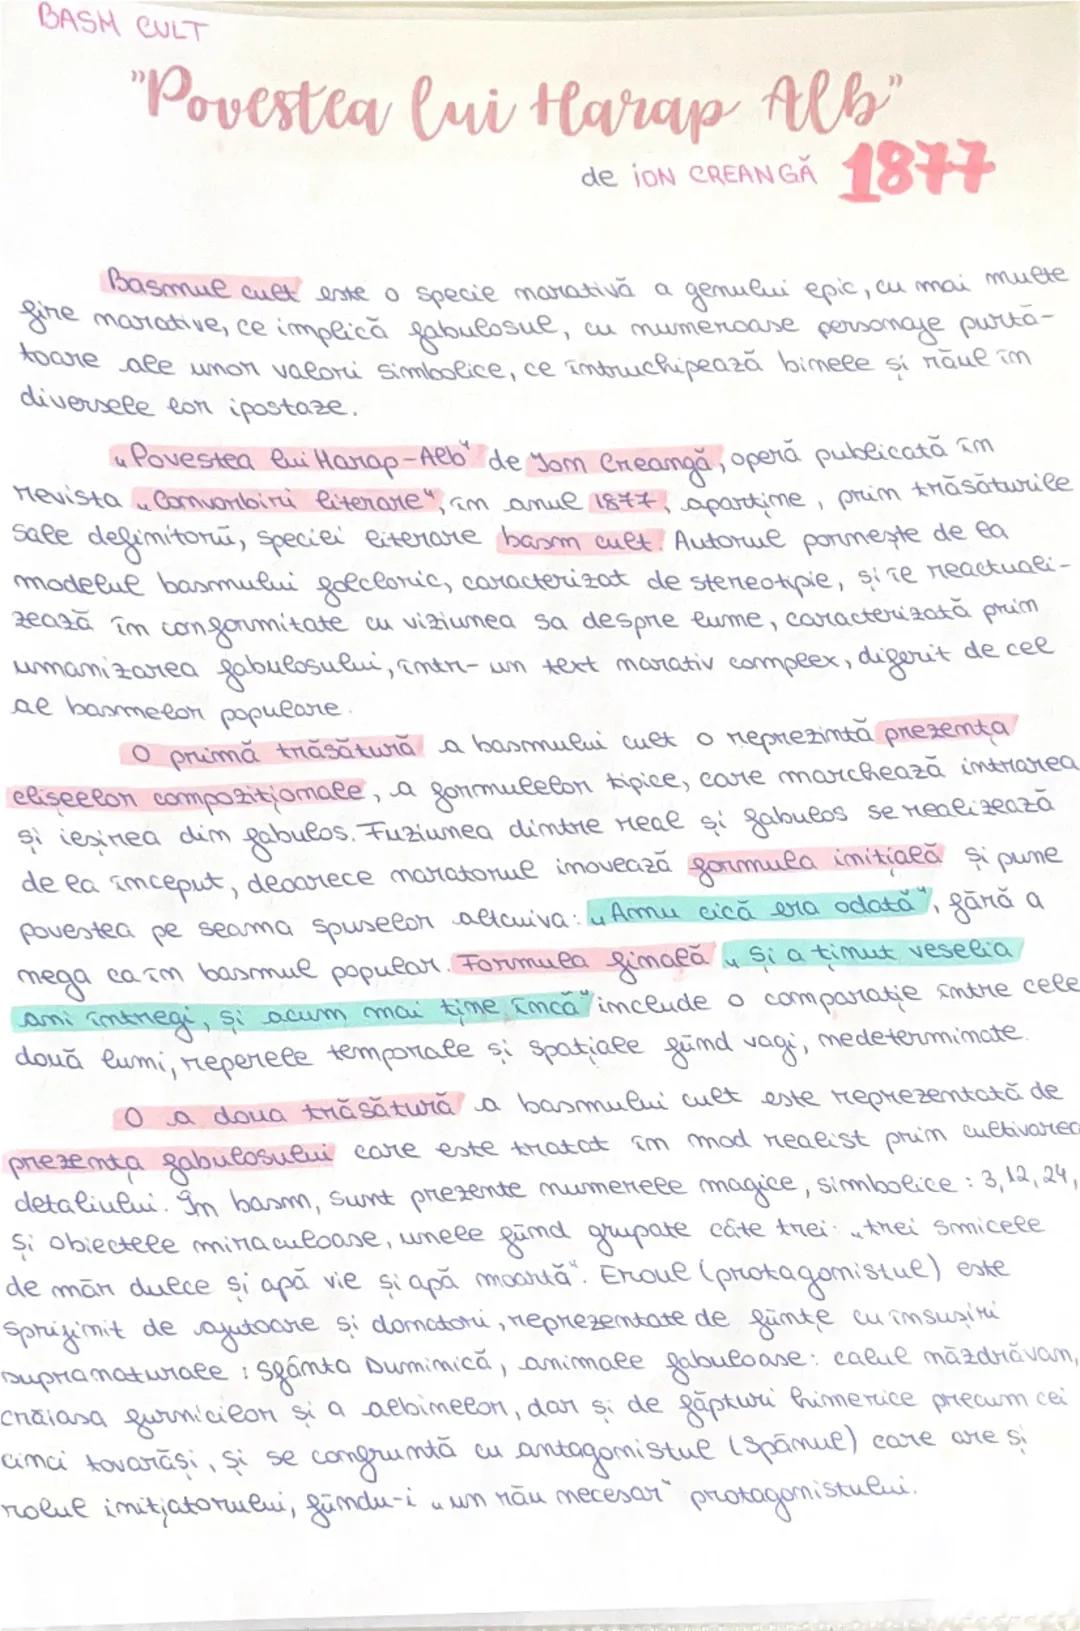 BASM CULT
"Povestea lui Harap Alb"
de ION CREANGĂ 1877
Basmul cult este o specie narativă a genului epic, cu mai multe
fire narative, ce implică fabulosul, cu numeroase personaje purtă-
toare ale unor valori simbolice, ce întruchipează binele și răul în
diversele lor ipostaze.
„Povestea lui Harap-Alb" de Ion Creangă, operă publicată în
revista „Convorbiri literare", în anul 1877, aparține, prin trăsăturile
sale definitorii, speciei literare basm cult. Autorul pornește de la
modelul basmului folcloric, caracterizat de stereotipie, și îl reactuali-
zează în conformitate cu viziunea sa despre lume, caracterizată prin
umanizarea fabulosului, într-un text narativ complex, diferit de cel
al basmelor populare.
O primă trăsătură a basmului cult o reprezintă prezența
clișeelor compoziționale, a formulelor tipice, care marchează intrarea
și ieșirea din fabulos. Fuziunea dintre real și fabulos se realizează
de la început, deoarece naratorul inovează formula inițială și pune
povestea pe seama spuselor altcuiva: „Amu cică era odată", fără a
nega ca în basmul popular. Formula finală „Și a ținut veselia
ani întregi, și acum mai ține încă" include o comparație între cele
două lumi, reperele temporale și spațiale fiind vagi, nedeterminate.
O a doua trăsătură a basmului cult este reprezentată de
prezența fabulosului care este tratat în mod realist prin cultivarea
detaliului. În basm, sunt prezente numerele magice, simbolice: 3,12,24,
și obiectele miraculoase, unele fiind grupate câte trei: „trei smicele
de măr dulce și apă vie și apă moartă". Eroul (protagonistul) este
sprijinit de ajutoare și donatori, reprezentate de ființe cu însușiri
supranaturale: Sfânta Duminică, animale fabuloase: calul năzdrăvan,
crăiasa furnicilor și a albinelor, dar și de făpturi himerice precum cei
cinci tovarăși, și se confruntă cu antagonistul (Spânul) care are și
rolul inițiatorului, fiindu-i „un rău necesar" protagonistului.